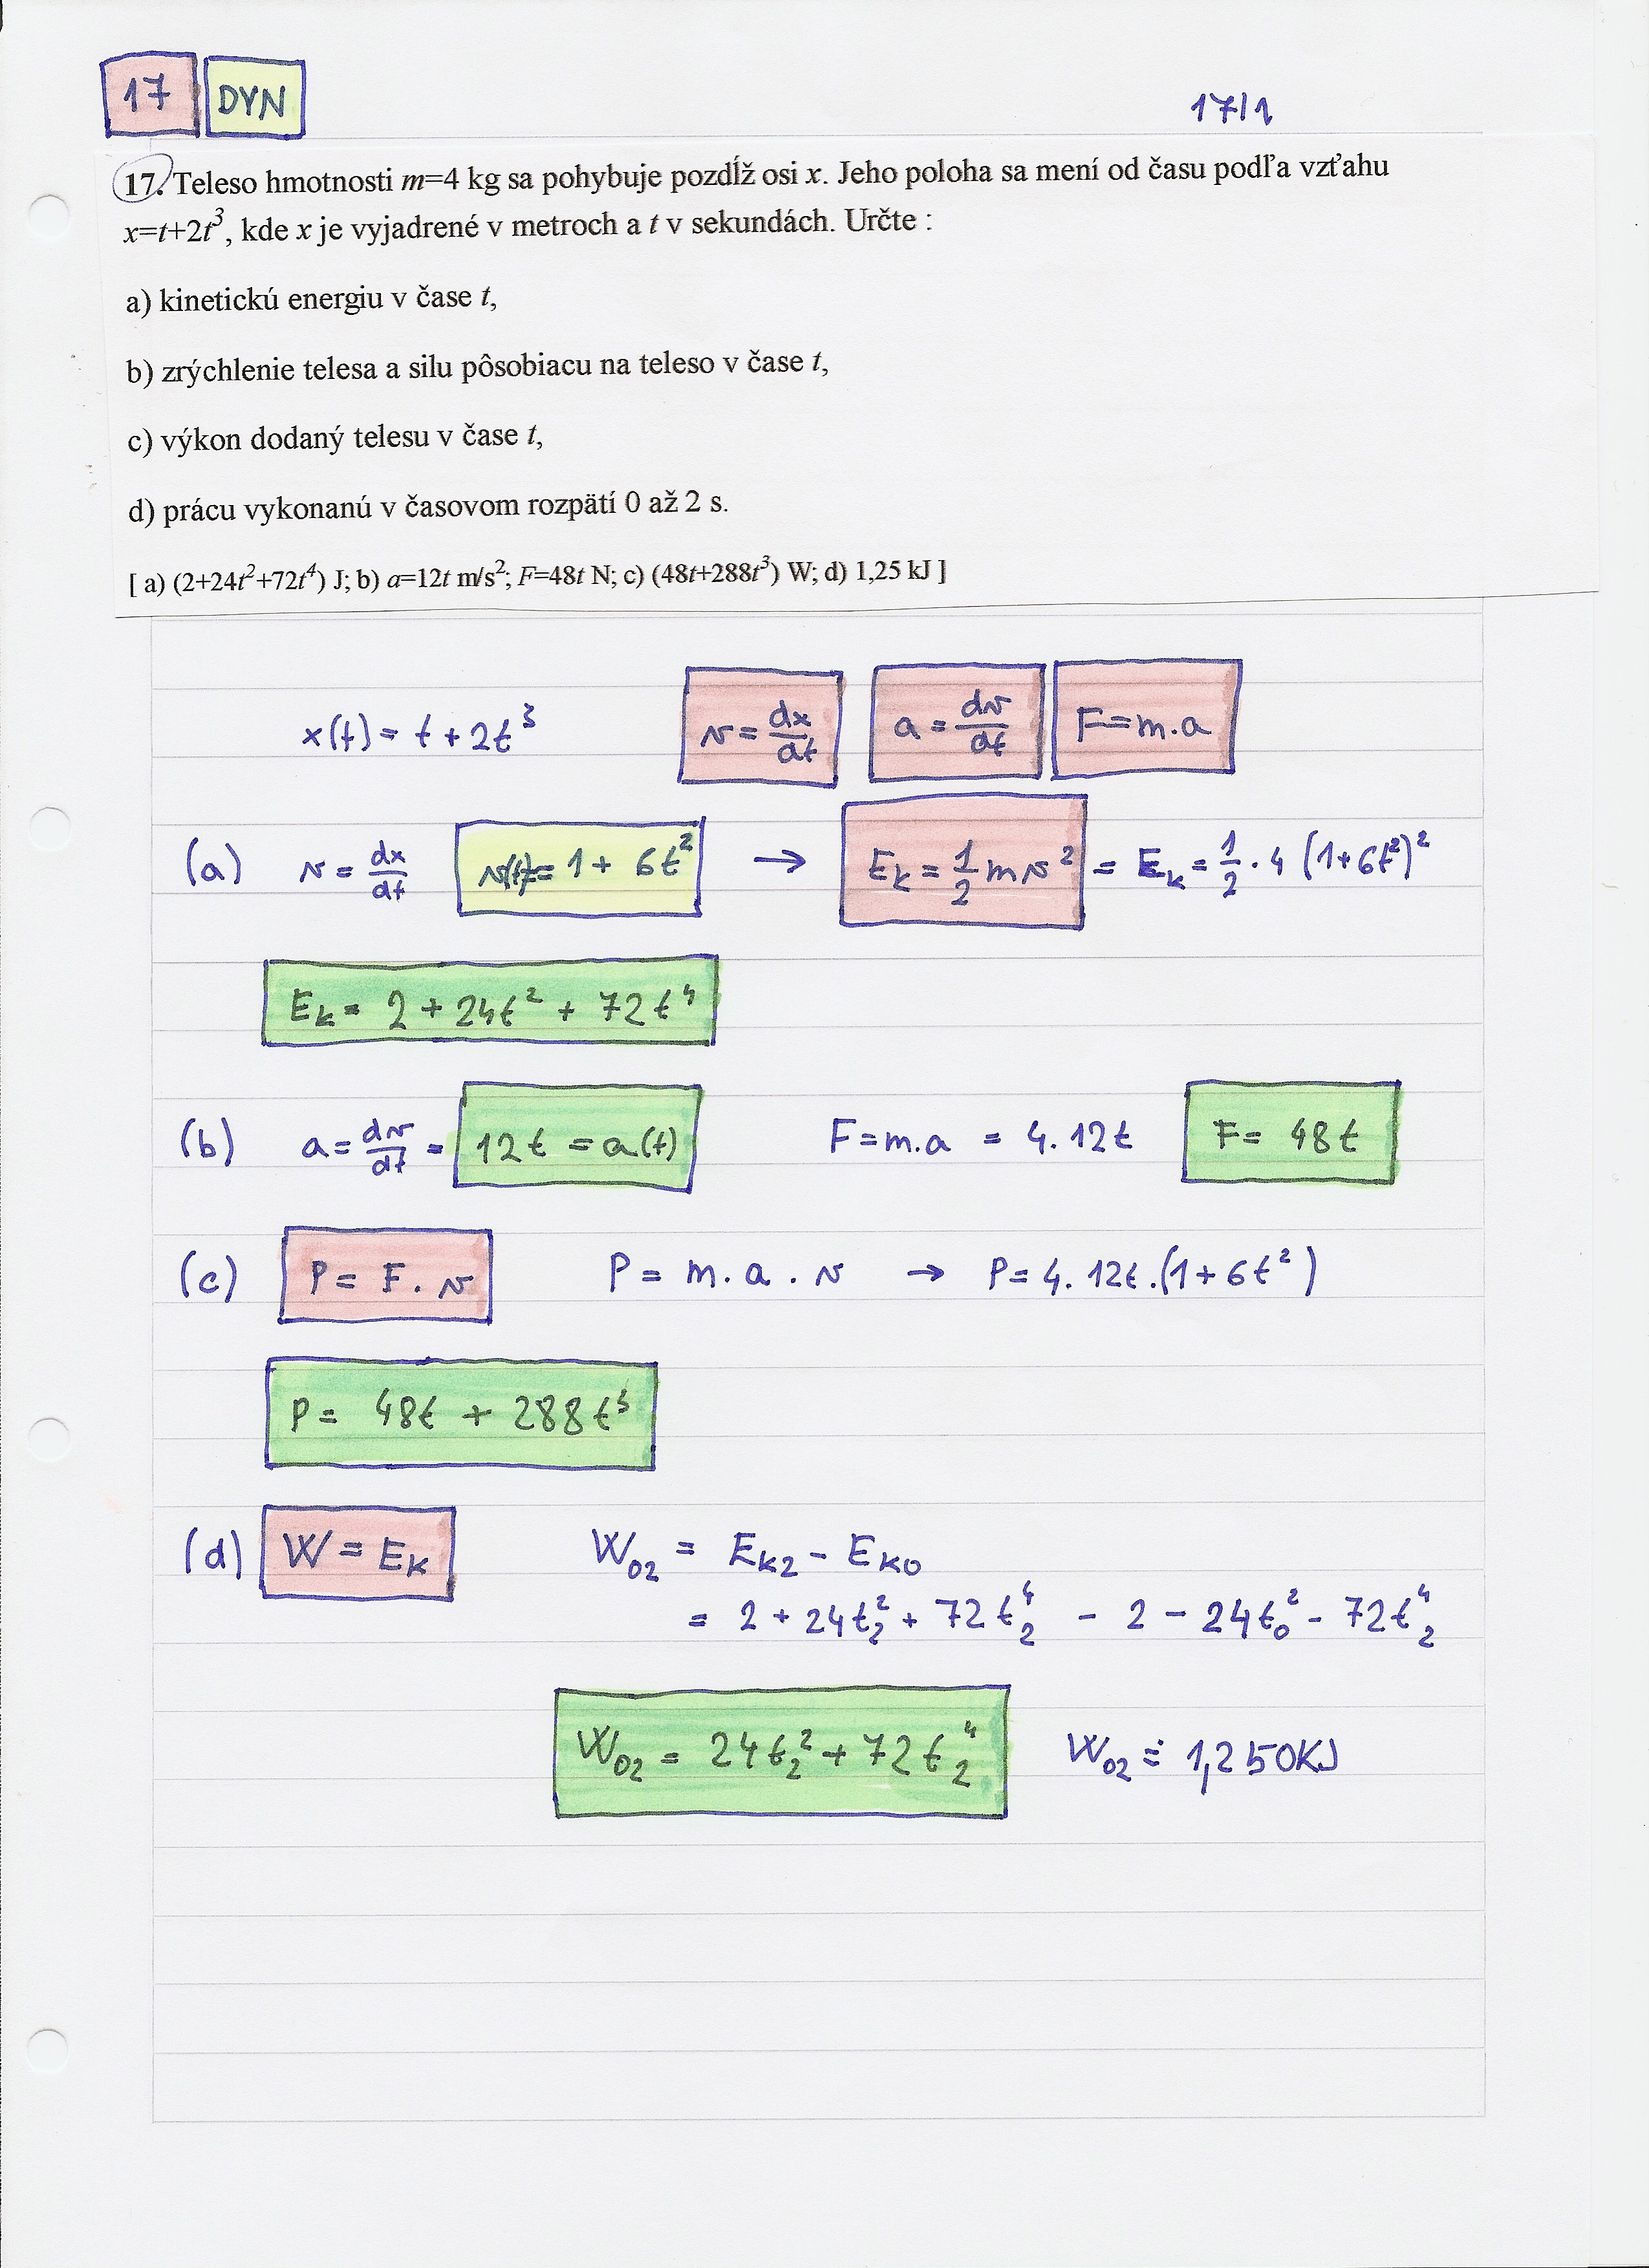 17 DYN 17/1
17. Teleso hmotnosti m=4 kg sa pohybuje pozdĺž osi x. Jeho poloha sa mení od času podľa vzťahu
x=t+2t³, kde x je vyjadrené v metroch a t v sekundách. Určte :
a) kinetickú energiu v čase t,
b) zrýchlenie telesa a silu pôsobiacu na teleso v čase t,
c) výkon dodaný telesu v čase t,
d) prácu vykonanú v časovom rozpätí 0 až 2 s.
[ a) (2+24t²+72t⁴) J; b) a=12t m/s²; F=48t N; c) (48t+288t³) W; d) 1,25 kJ ]
x(t) = t + 2t³ v = dx/dt a = dv/dt F = m.a
(a) v = dx/dt v(t) = 1 + 6t² → E_k = 1/2 m v² = E_k = 1/2 . 4 (1+6t²)²
E_k = 2 + 24t² + 72t⁴
(b) a = dv/dt = 12t = a(t) F = m.a = 4.12t F = 48t
(c) P = F . v P = m. a . v → P = 4. 12t .(1+6t²)
P = 48t + 288t³
(d) W = E_K W₀₂ = E_K2 - E_K0
= 2 + 24t₂² + 72t₂⁴ - 2 - 24t₀² - 72t₂⁴
W₀₂ = 24t₂² + 72t₂⁴ W₀₂ ≐ 1,250KJ